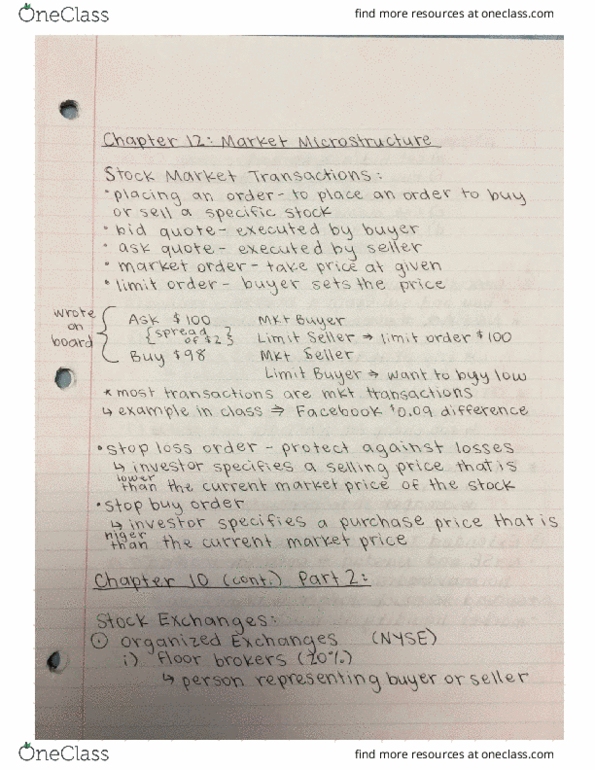 OneClass
find more resources at oneclass.com
Chapter 12: Market Microstructure
Stock Market Transactions:
• placing an order - to place an order to buy
or sell a specific stock
• bid quote - executed by buyer
• ask quote - executed by seller
• market order - take price at given
• limit order - buyer sets the price
wrote on board { Ask $100 Mkt Buyer
{spread of $2} Limit Seller → limit order $100
Buy $98 Mkt Seller
Limit Buyer → want to buy low
* most transactions are mkt transactions
↳ example in class ⇒ Facebook $0.09 difference
• stop loss order - protect against losses
↳ investor specifies a selling price that is
lower than the current market price of the stock
• stop buy order
↳ investor specifies a purchase price that is
higer than the current market price
Chapter 10 (cont.) Part 2:
Stock Exchanges:
① Organized Exchanges (NYSE)
i) floor brokers (20%)
↳ person representing buyer or seller
OneClass
find more resources at oneclass.com